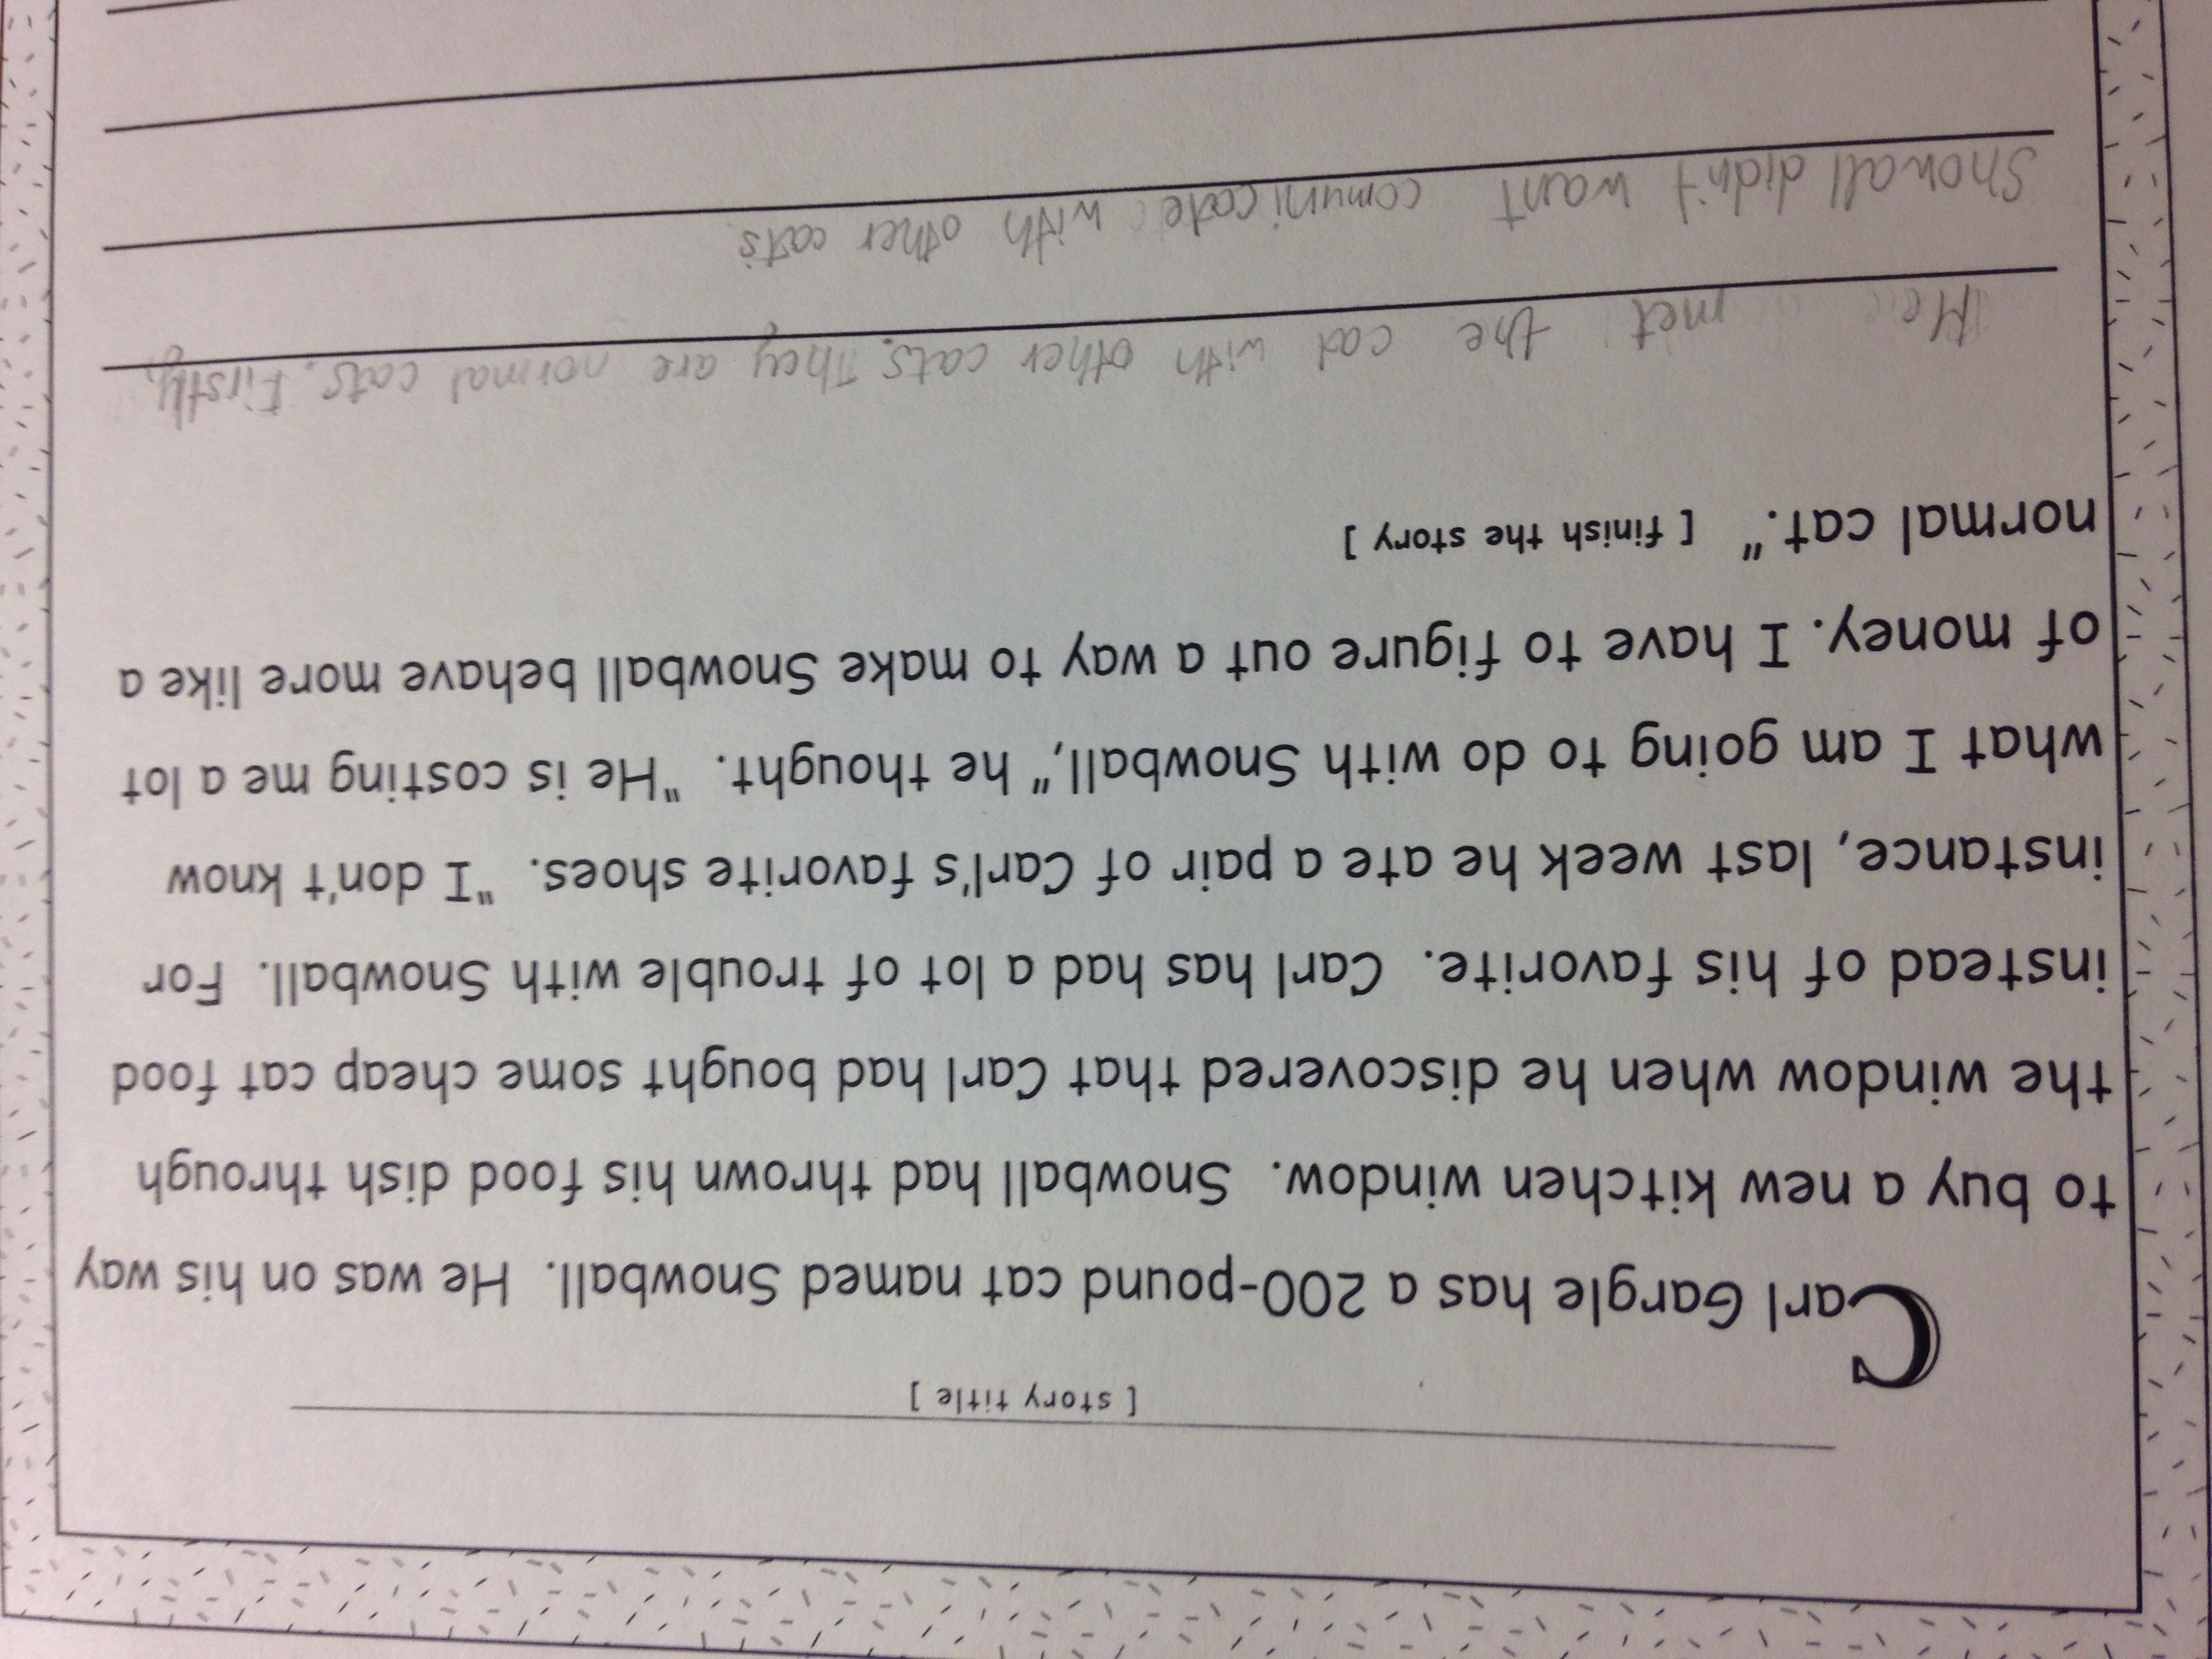 [ story title ]
Carl Gargle has a 200-pound cat named Snowball. He was on his way
to buy a new kitchen window. Snowball had thrown his food dish through
the window when he discovered that Carl had bought some cheap cat food
instead of his favorite. Carl has had a lot of trouble with Snowball. For
instance, last week he ate a pair of Carl's favorite shoes. "I don't know
what I am going to do with Snowball," he thought. "He is costing me a lot
of money. I have to figure out a way to make Snowball behave more like a
normal cat." [ finish the story ]
He met the cat with other cats. They are normal cats. Firstly,
Snowall didn't want comunicate with other cats.